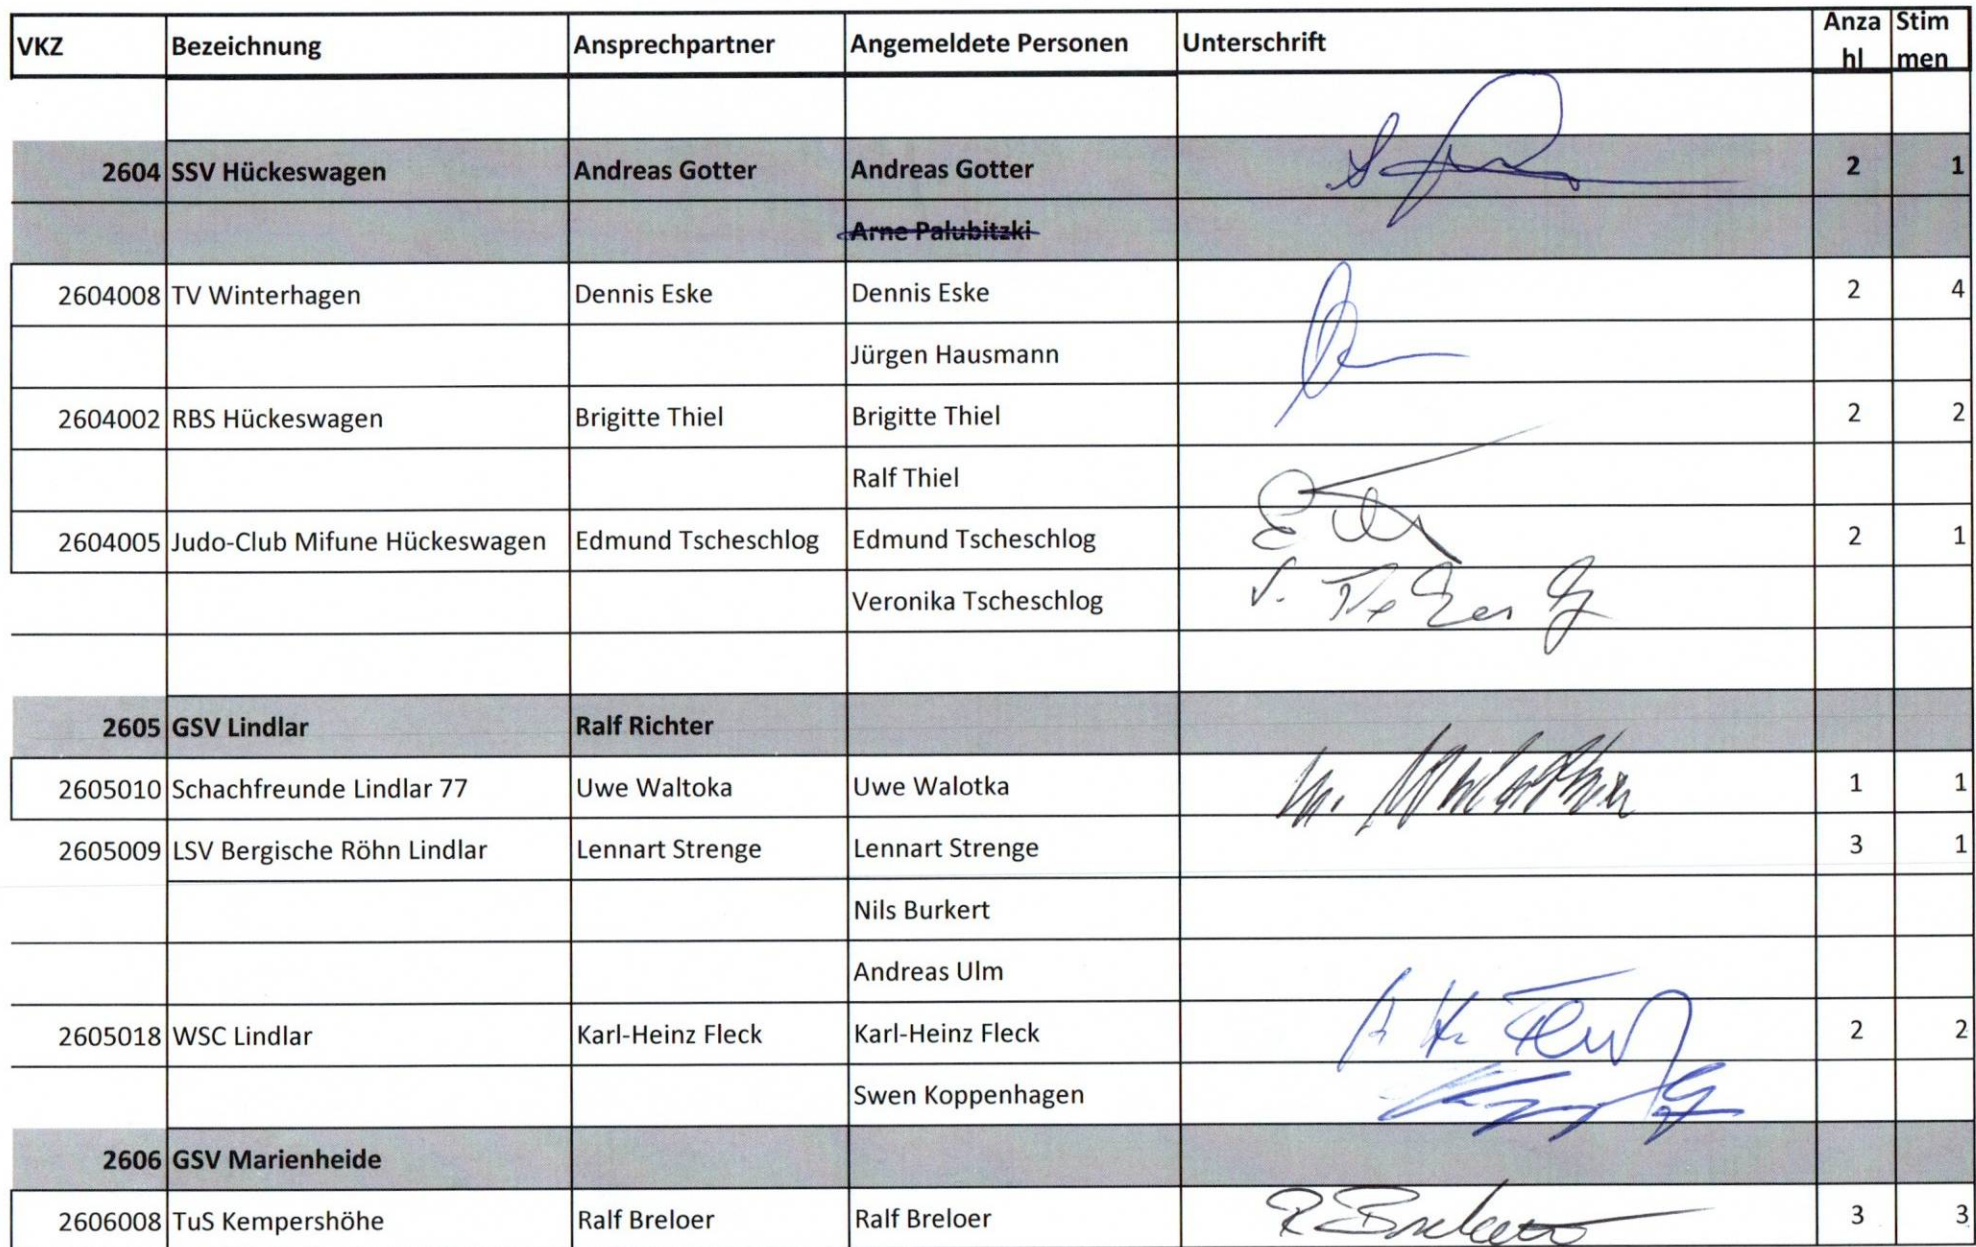 VKZ Bezeichnung Ansprechpartner Angemeldete Personen Unterschrift Anzahl Stimmen
2604 SSV Hückeswagen Andreas Gotter Andreas Gotter 2 1
Arne Palubitzki
2604008 TV Winterhagen Dennis Eske Dennis Eske 2 4
Jürgen Hausmann
2604002 RBS Hückeswagen Brigitte Thiel Brigitte Thiel 2 2
Ralf Thiel
2604005 Judo-Club Mifune Hückeswagen Edmund Tscheschlog Edmund Tscheschlog 2 1
Veronika Tscheschlog
2605 GSV Lindlar Ralf Richter
2605010 Schachfreunde Lindlar 77 Uwe Waltoka Uwe Walotka 1 1
2605009 LSV Bergische Röhn Lindlar Lennart Strenge Lennart Strenge 3 1
Nils Burkert
Andreas Ulm
2605018 WSC Lindlar Karl-Heinz Fleck Karl-Heinz Fleck 2 2
Swen Koppenhagen
2606 GSV Marienheide
2606008 TuS Kempershöhe Ralf Breloer Ralf Breloer R Breloer 3 3